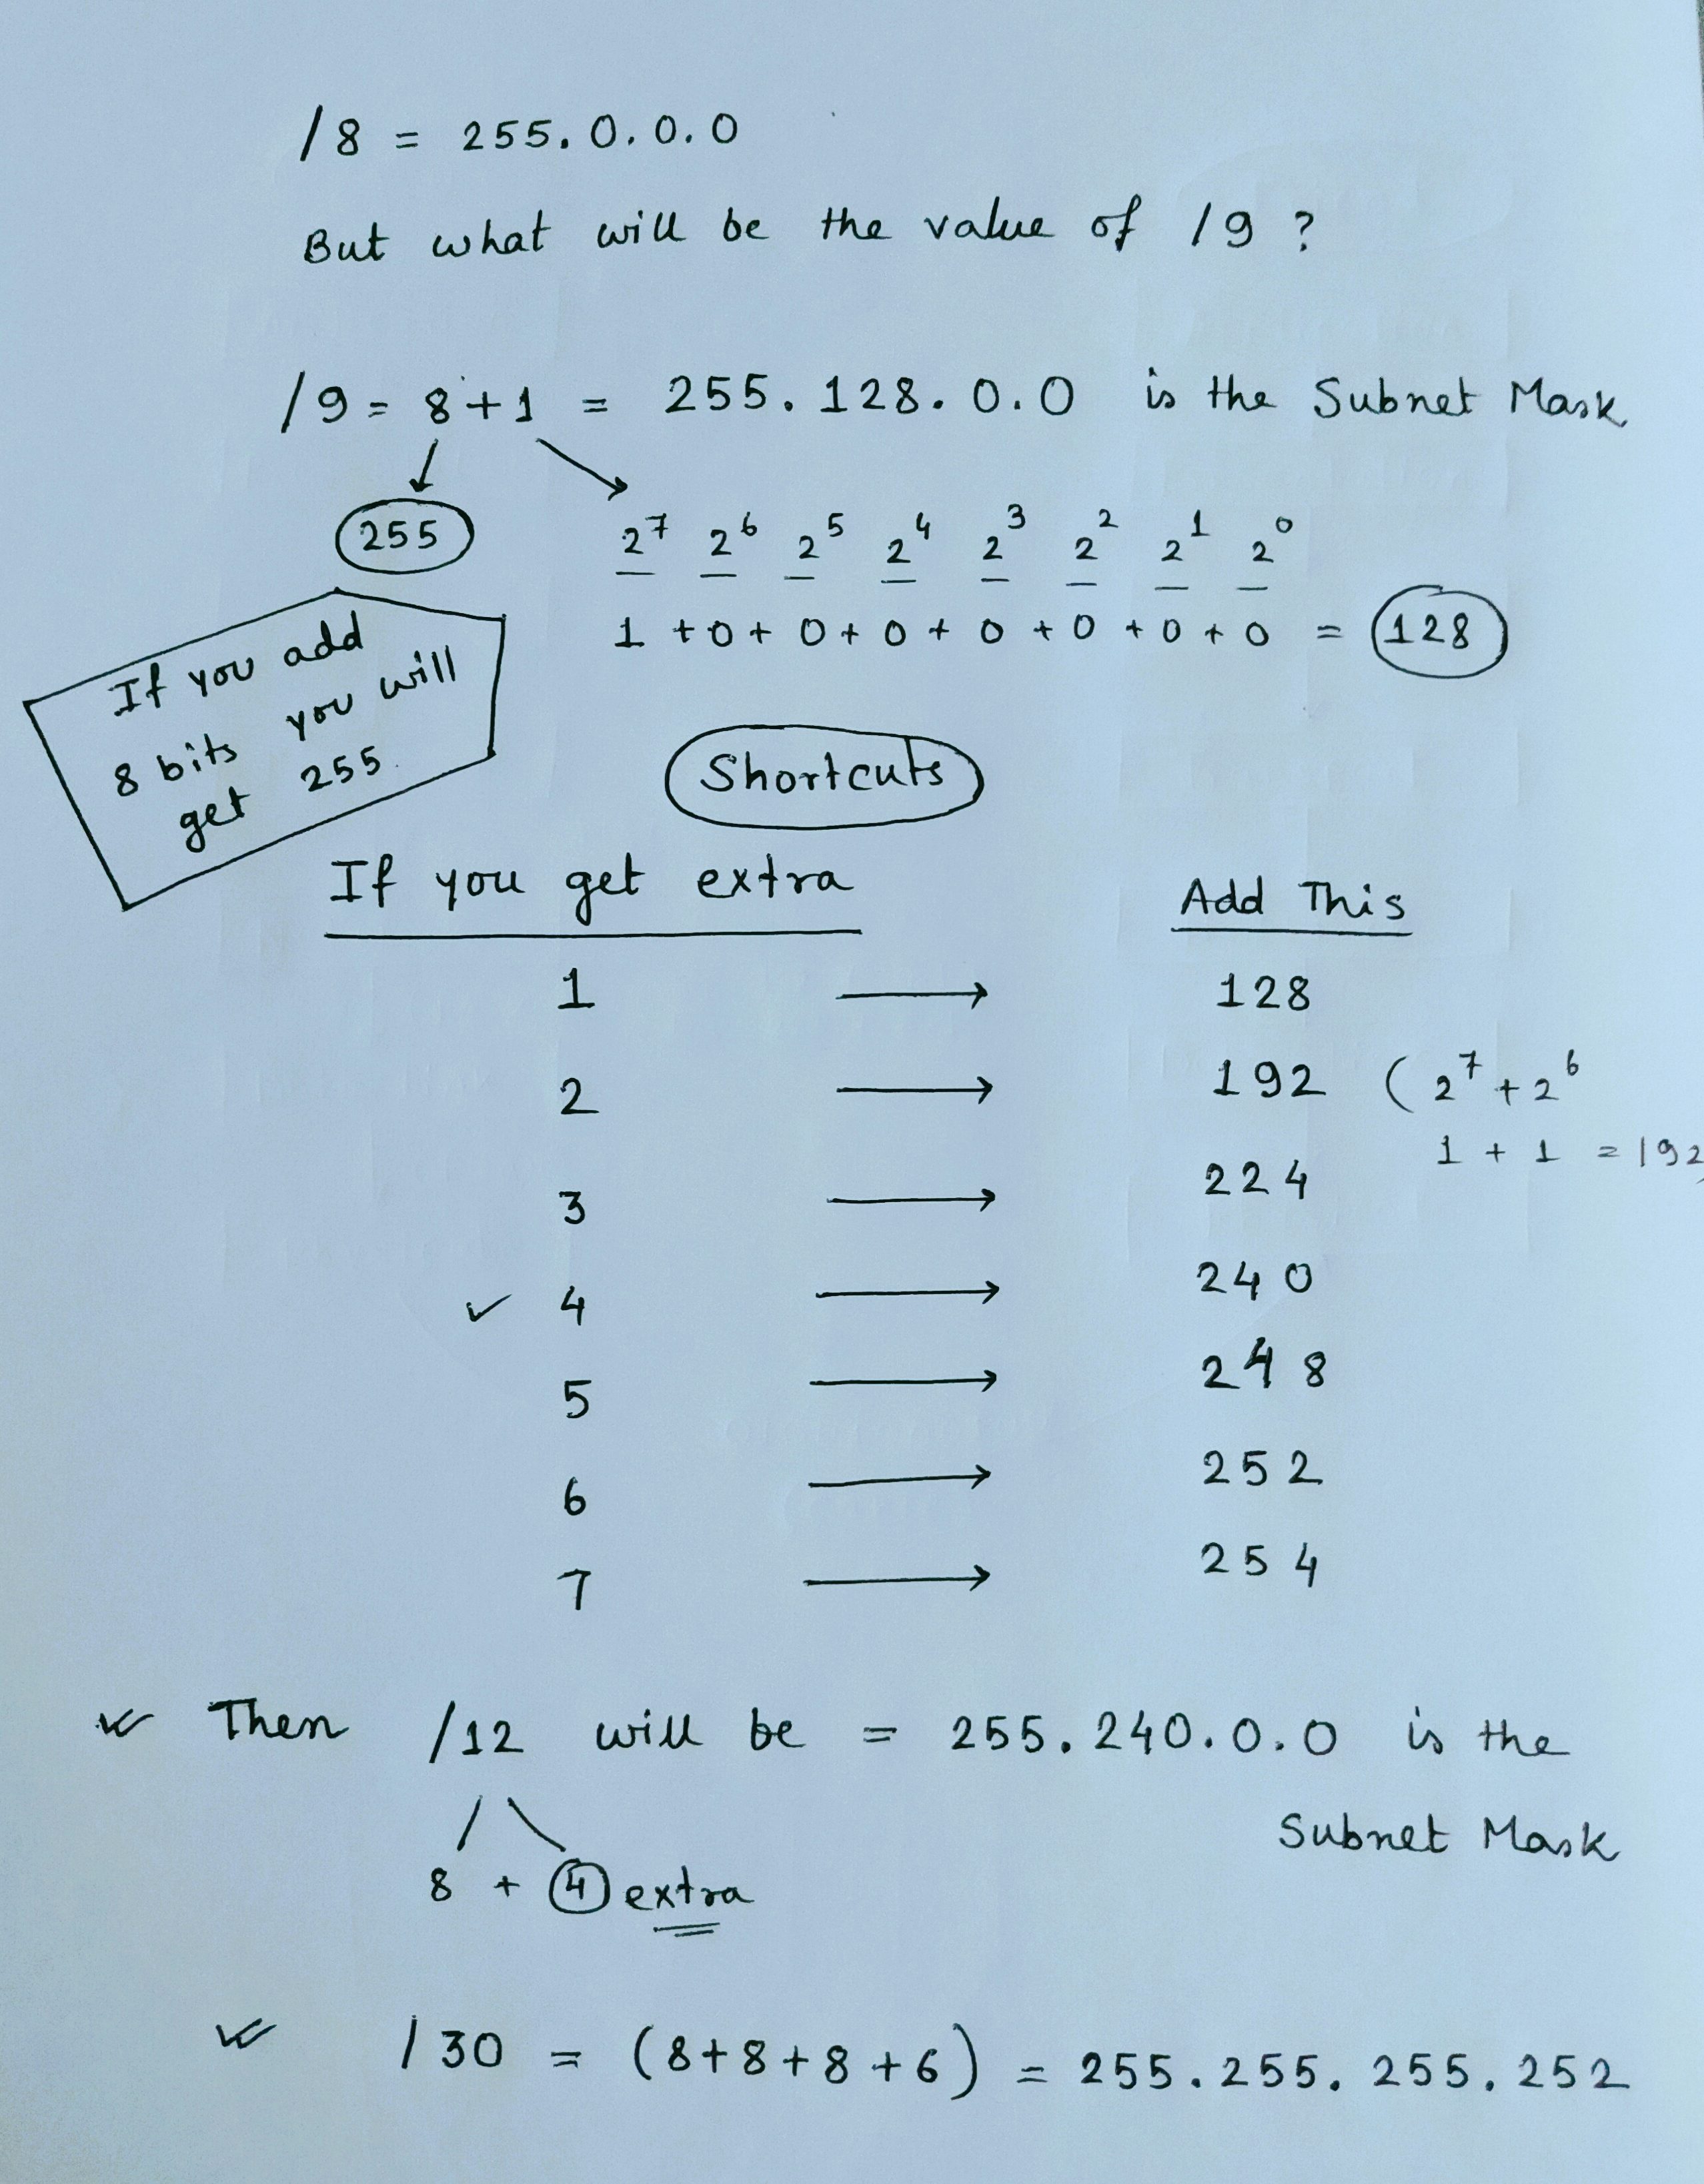 /8 = 255.0.0.0
But what will be the value of /9 ?
/9 = 8+1 = 255.128.0.0 is the Subnet Mask
255
2⁷ 2⁶ 2⁵ 2⁴ 2³ 2² 2¹ 2⁰
1 + 0 + 0 + 0 + 0 + 0 + 0 + 0 = 128
If you add
8 bits you will
get 255
Shortcuts
If you get extra Add This
1 → 128
2 → 192 (2⁷ + 2⁶
1 + 1 = 192)
3 → 224
✓ 4 → 240
5 → 248
6 → 252
7 → 254
Then /12 will be = 255.240.0.0 is the
Subnet Mask
8 + 4 extra
/30 = (8+8+8+6) = 255.255.255.252